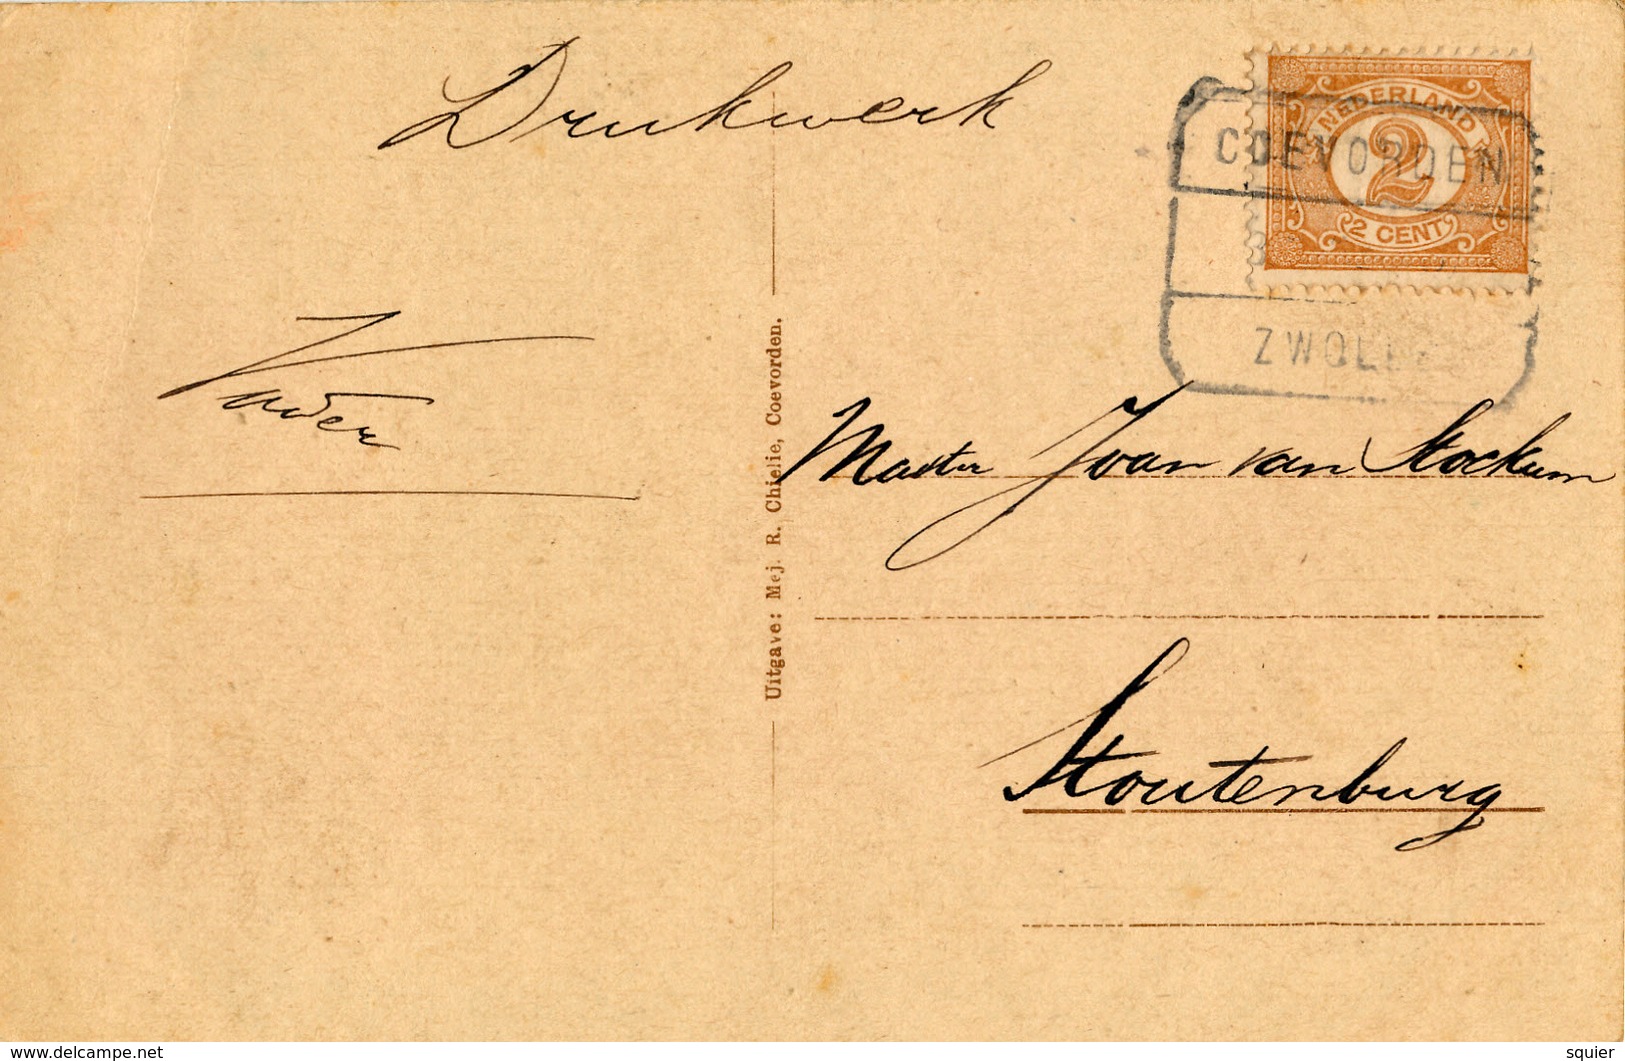 Drukwerk
NEDERLAND
2
2 CENT
COEVORDEN
ZWOLL
Vader
Uitgave: Mej. R. Chielie, Coevorden.
Master Joan van Stockum
Stoutenburg
www.delcampe.net
squier